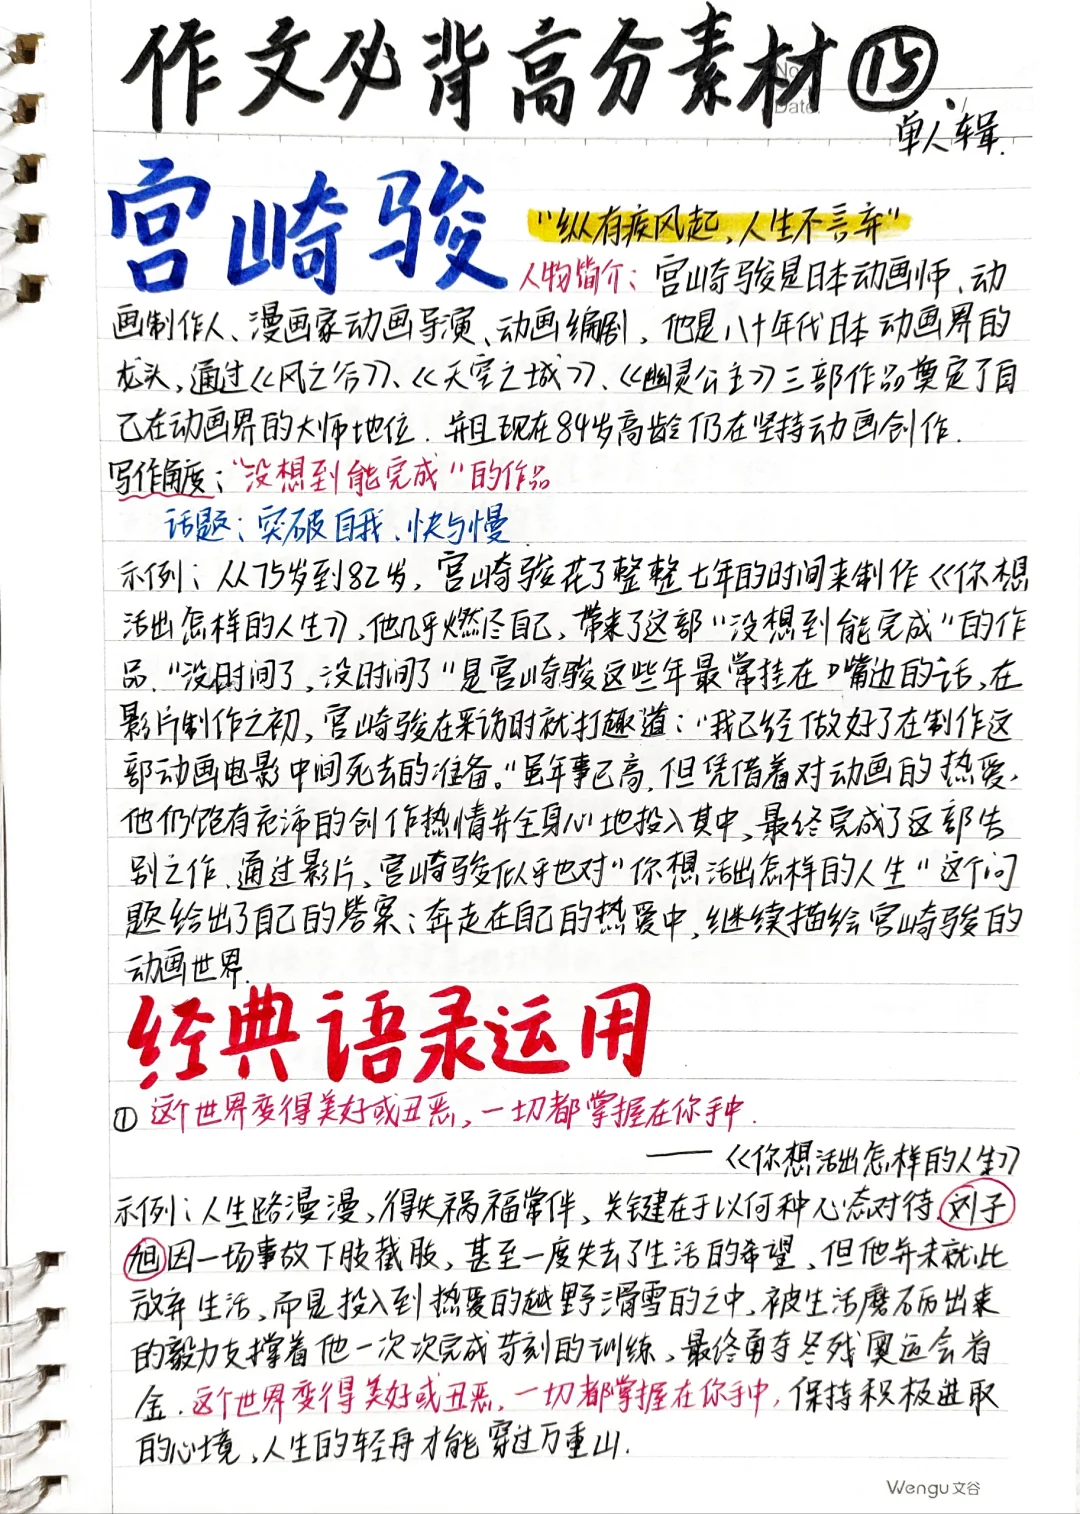 作文必背高分素材⑮
No.
Date.
单人辑.
宫崎骏
"纵有疾风起,人生不言弃"
人物简介:宫崎骏是日本动画师、动
画制作人、漫画家动画导演、动画编剧,他是八十年代日本动画界的
龙头,通过《风之谷》、《天空之城》、《幽灵公主》三部作品奠定了自
己在动画界的大师地位.并且现在84岁高龄仍在坚持动画创作.
写作角度:"没想到能完成"的作品
话题:突破自我、快与慢
示例:从75岁到82岁,宫崎骏花了整整七年的时间来制作《你想
活出怎样的人生》,他几乎燃尽自己,带来了这部"没想到能完成"的作
品."没时间了,没时间了"是宫崎骏这些年最常挂在嘴边的话,在
影片制作之初,宫崎骏在采访时就打趣道:"我已经做好了在制作这
部动画电影中间死去的准备。"虽年事已高,但凭借着对动画的热爱,
他仍饱有充沛的创作热情并全身心地投入其中,最终完成了这部告
别之作.通过影片,宫崎骏似乎也对"你想活出怎样的人生"这个问
题给出了自己的答案:奔走在自己的热爱中,继续描绘宫崎骏的
动画世界.
经典语录运用
①这个世界变得美好或丑恶,一切都掌握在你手中.
——《你想活出怎样的人生》
示例:人生路漫漫,得失祸福常伴,关键在于以何种心态对待.刘子
旭因一场事故下肢截肢,甚至一度失去了生活的希望,但他并未就此
放弃生活,而是投入到热爱的越野滑雪的之中,被生活磨砺出来
的毅力支撑着他一次次完成苛刻的训练,最终勇夺冬残奥运会首
金.这个世界变得美好或丑恶,一切都掌握在你手中,保持积极进取
的心境,人生的轻舟才能穿过万重山.
Wengu文谷